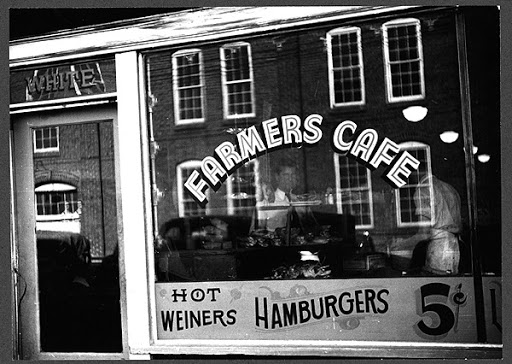 WHITE
FARMERS CAFE
HOT
WEINERS
HAMBURGERS
5¢